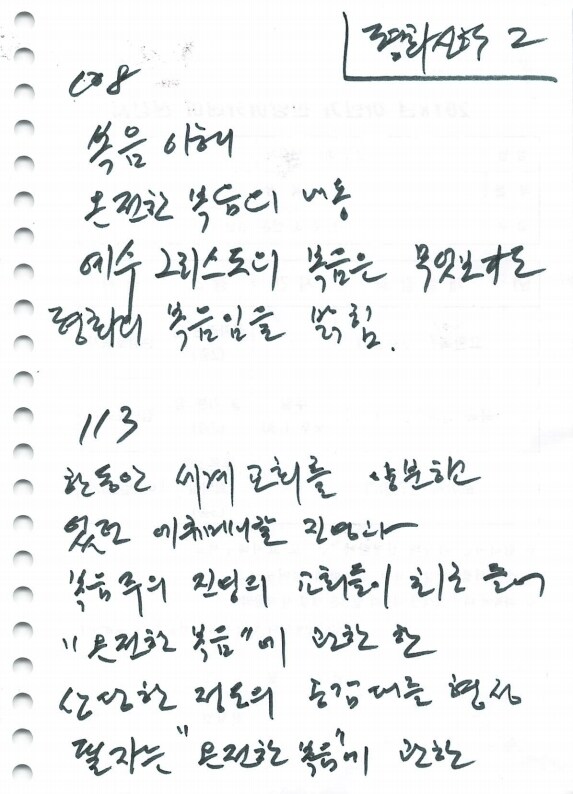 평화신학 2
108
복음 이해
온전한 복음의 내용
예수 그리스도의 복음은 무엇보다도
평화의 복음임을 밝힘.
113
한동안 세계 교회를 양분하고
있던 에큐메니칼 진영과
복음주의 진영의 교회들이 최근 들어
"온전한 복음"에 관한 한
상당한 정도의 공감대를 형성
필자는 "온전한 복음"에 관한